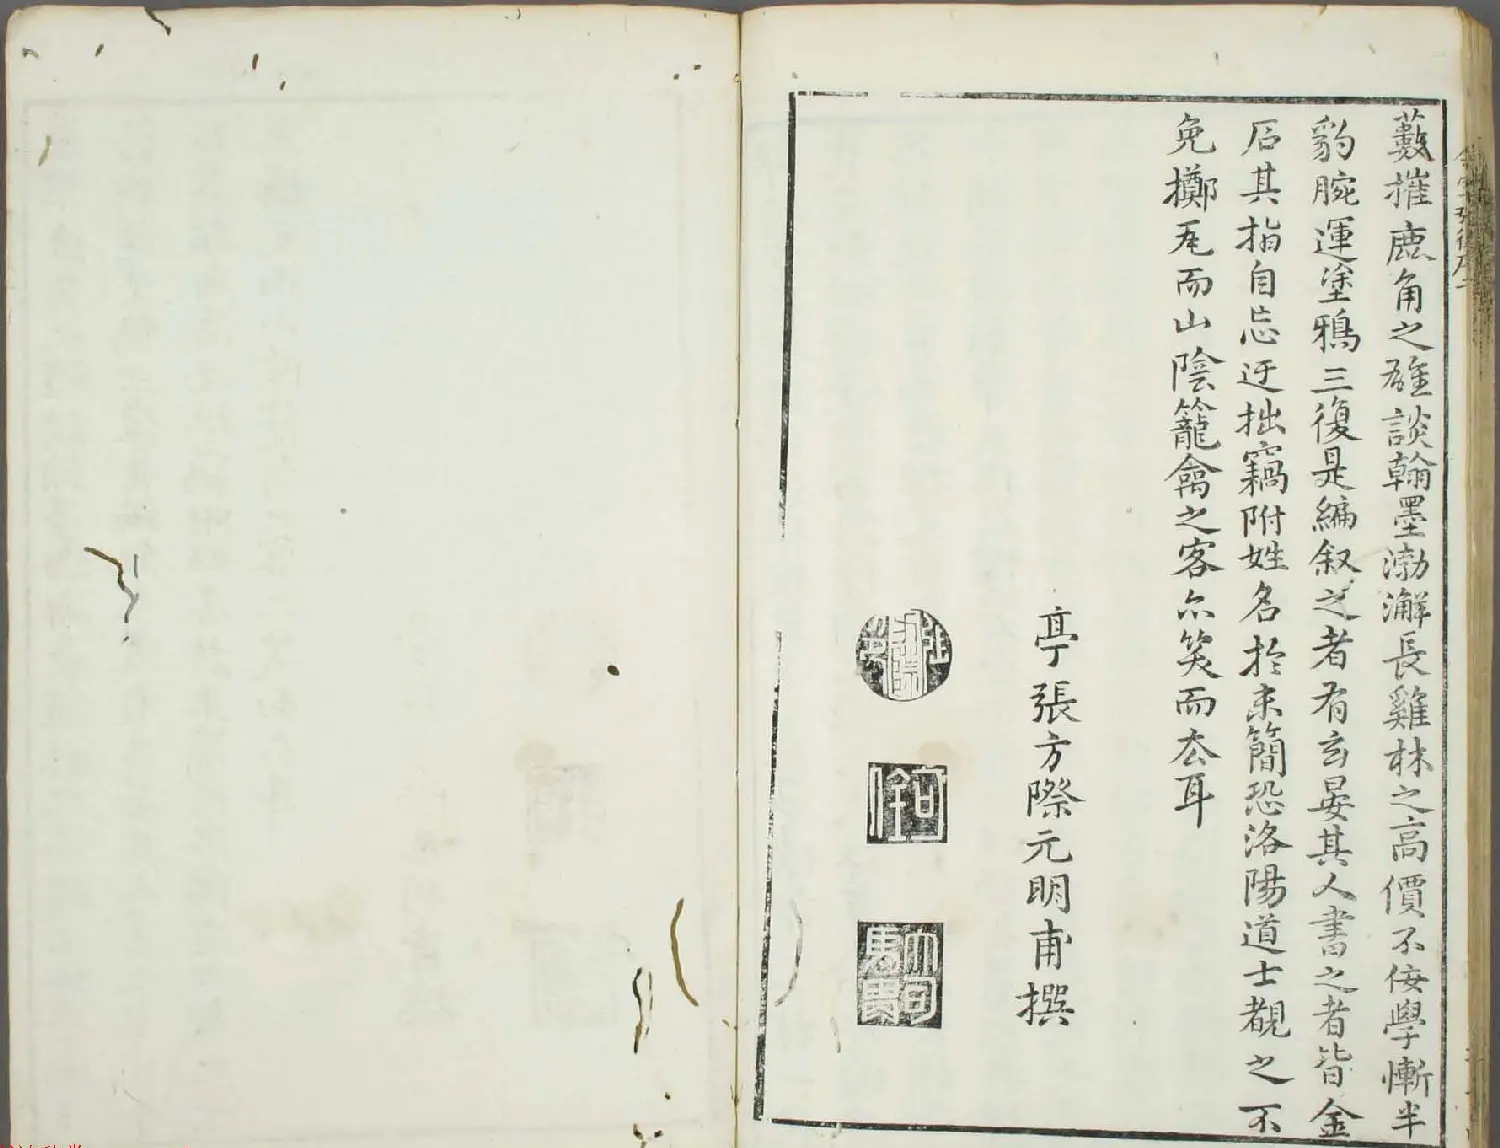 藪摧鹿角之雄談翰墨渤澥長雞林之高價不佞學慚半
豹腕運塗鴉三復是編叙之者有玄晏其人書之者皆金
石其指自忘迂拙竊附姓名於末簡恐洛陽道士覩之不
免擲瓦而山陰籠禽之客亦笑而去耳
亭張方際元明甫撰